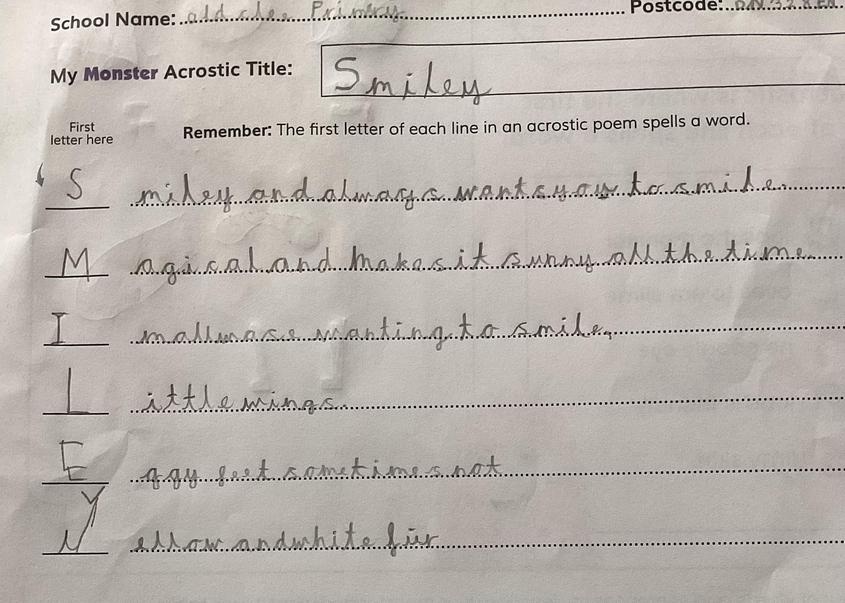 School Name: Primary
Postcode:
My Monster Acrostic Title: Smiley
First
letter here
Remember: The first letter of each line in an acrostic poem spells a word.
S miley and always wants you to smile.
M agical and makes it sunny all the time.
I m allwase wanting to smile.
L ittle wings.
E ggy feet sometimes not
Y ellow and white fur